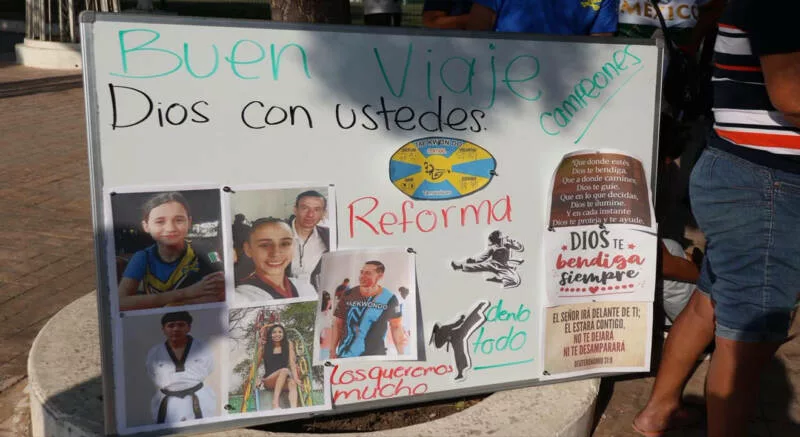 MÉXICO
Buen Viaje
campeones
Dios con ustedes.
TAEKWONDO
Reforma
Que donde estés,
Dios te bendiga.
Que a donde camines,
Dios te guíe.
Que en lo que decidas,
Dios te ilumine.
Y en cada instante
Dios te proteja y te ayude.
DIOS TE
bendiga
siempre
denlo
todo
EL SEÑOR IRÁ DELANTE DE TI;
EL ESTARÁ CONTIGO,
NO TE DEJARÁ
NI TE DESAMPARARÁ
DEUTERONOMIO 31:8
los queremos
mucho